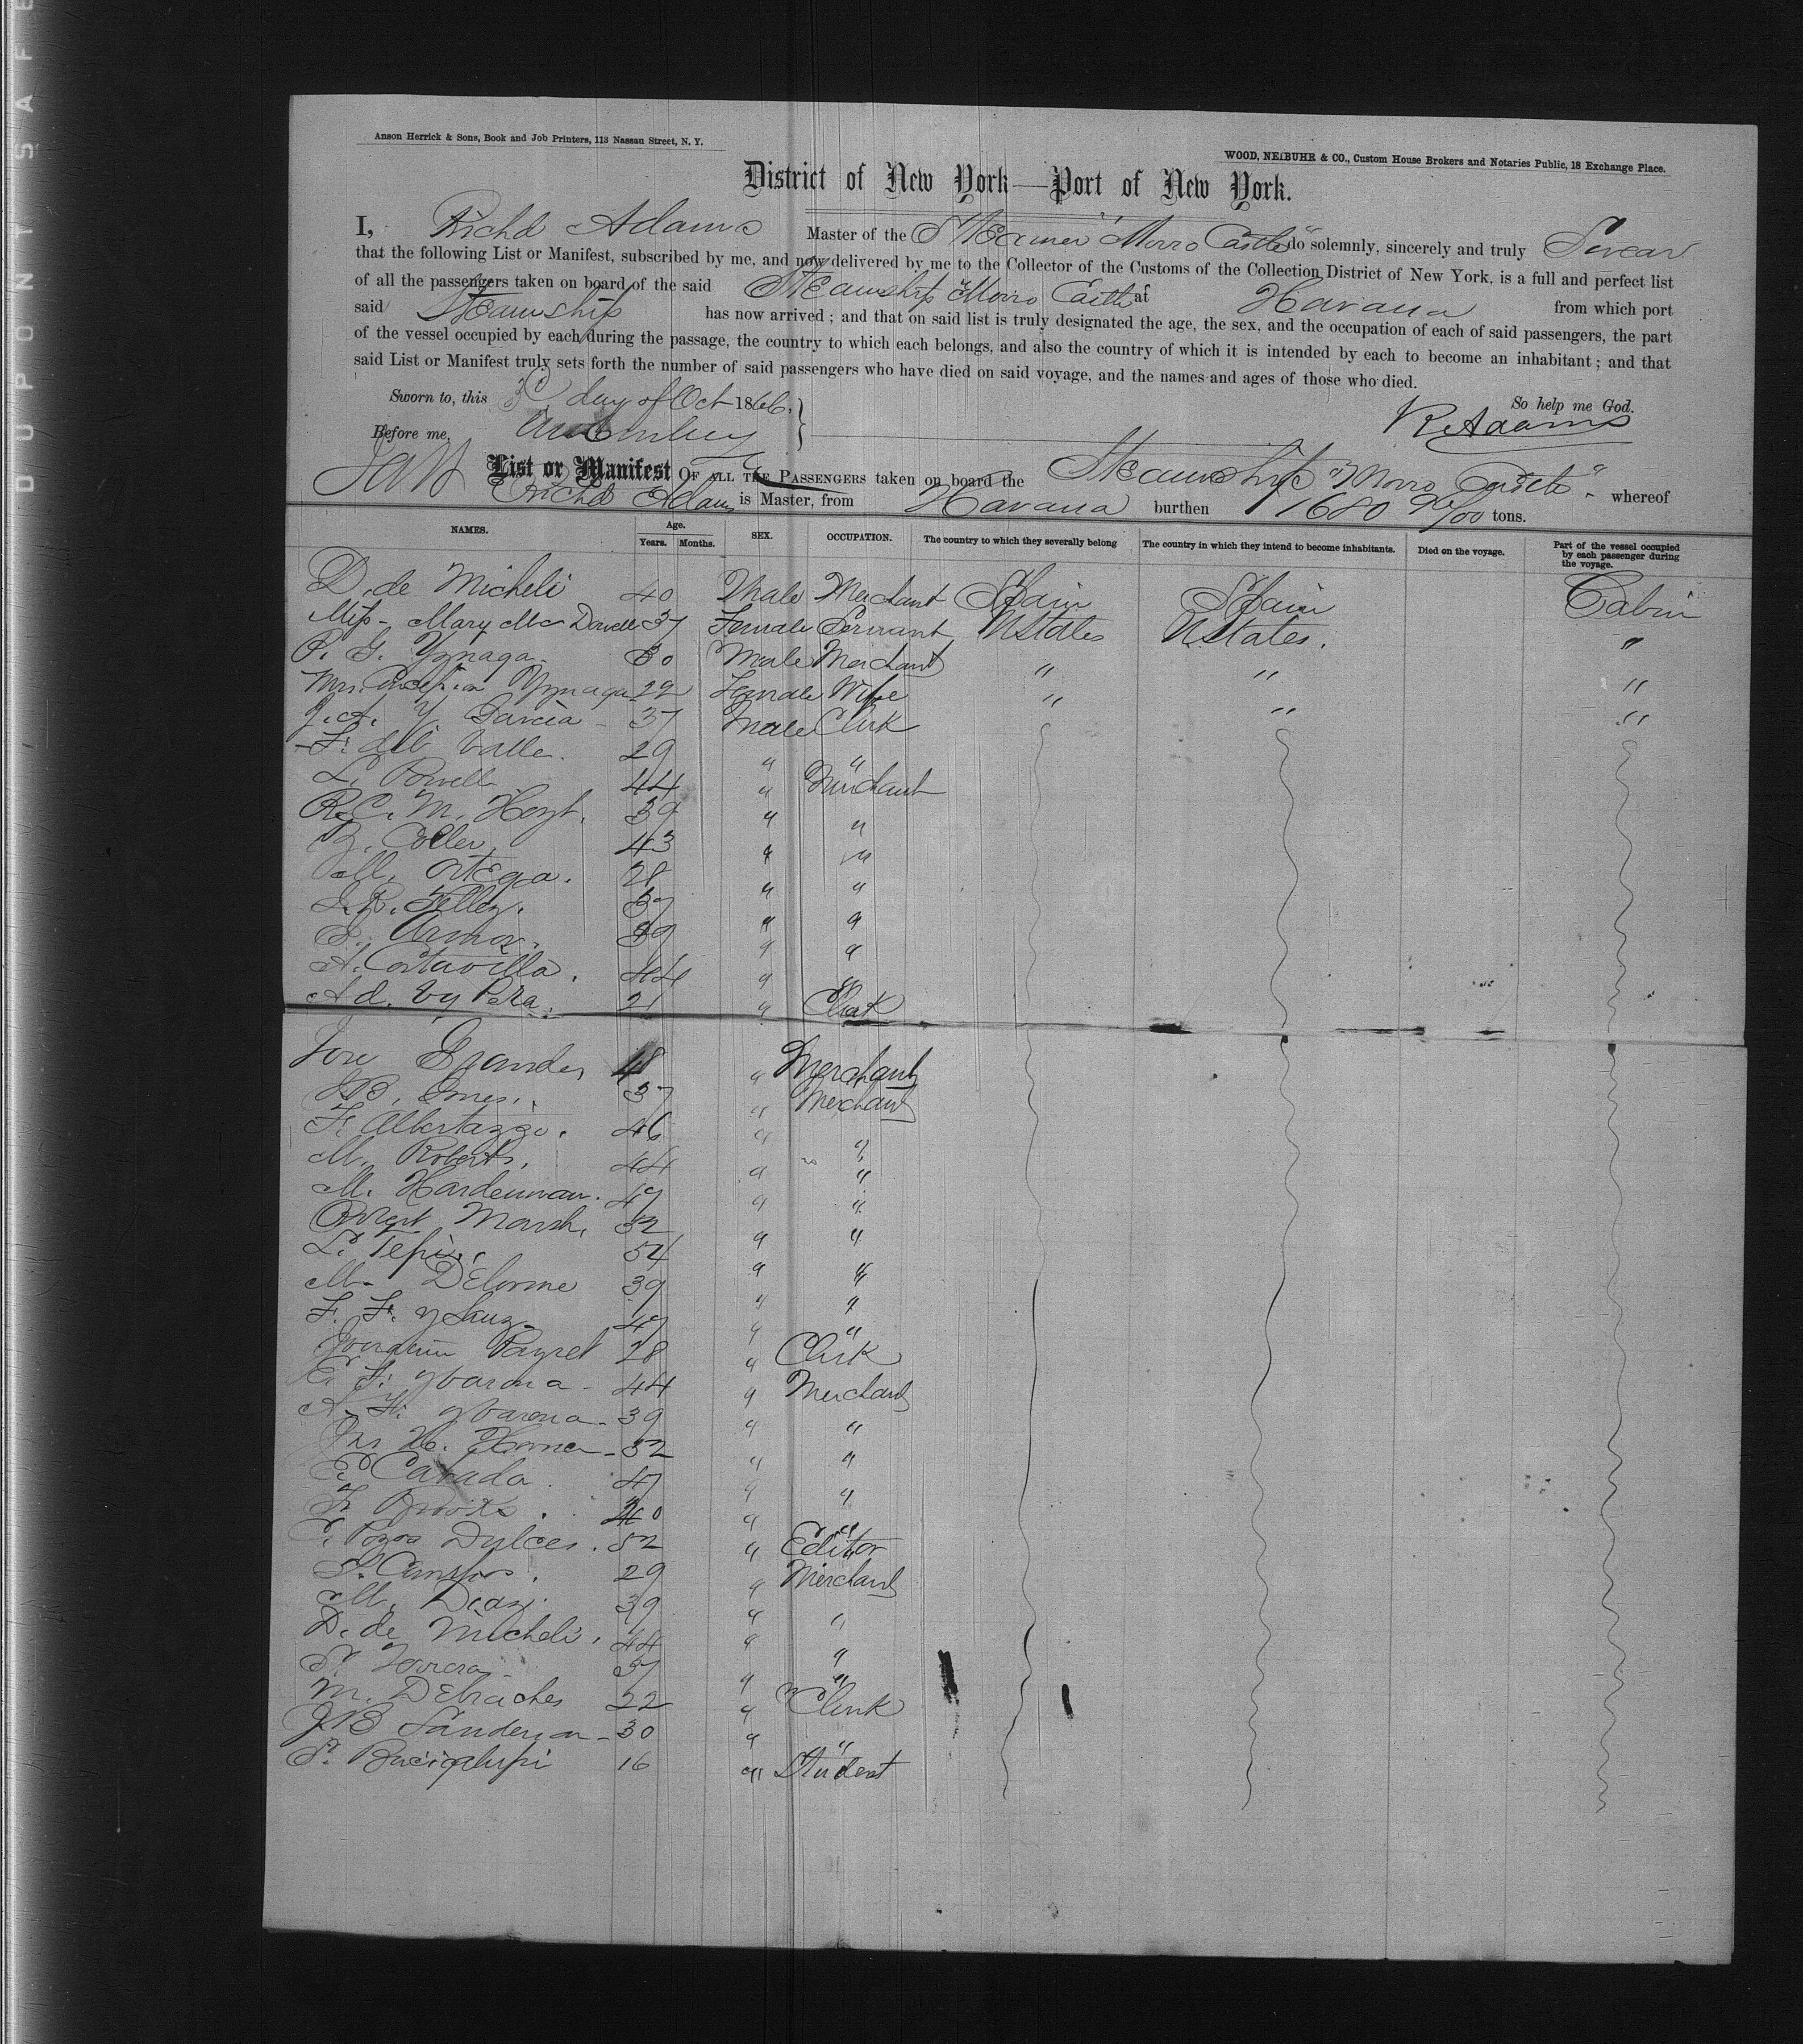 DUPONT SAFE
Anson Herrick & Sons, Book and Job Printers, 113 Nassau Street, N. Y.
WOOD, NEIBUHR & CO., Custom House Brokers and Notaries Public, 18 Exchange Place.
District of New York—Port of New York.
I, Richd Adams Master of the Steamer "Morro Castle" do solemnly, sincerely and truly Swear
that the following List or Manifest, subscribed by me, and now delivered by me to the Collector of the Customs of the Collection District of New York, is a full and perfect list
of all the passengers taken on board of the said Steamship "Morro Castle at Havana from which port
said Steamship has now arrived; and that on said list is truly designated the age, the sex, and the occupation of each of said passengers, the part
of the vessel occupied by each during the passage, the country to which each belongs, and also the country of which it is intended by each to become an inhabitant; and that
said List or Manifest truly sets forth the number of said passengers who have died on said voyage, and the names and ages of those who died.
Sworn to, this 3d day of Oct 1866. So help me God.
Before me, R Adams
List or Manifest OF ALL THE PASSENGERS taken on board the Steamship "Morro Castle" whereof
Richd Adams is Master, from Havana burthen 1680 /100 tons.
NAMES. Age. Years. Months. SEX. OCCUPATION. The country to which they severally belong The country in which they intend to become inhabitants. Died on the voyage. Part of the vessel occupied by each passenger during the voyage.
D. de Micheli 40 Male Merchant Spain Spain Cabin
Miss Mary Mc Dowell 37 Female Servant U States U States. "
P. G. Yznaga 30 Male Merchant " " "
Mrs. Yznaga 22 Female Wife " " "
J. A. Y Garcia 37 Male Clerk
F. del Valle. 29 " "
L. Powell 44 " Merchant
R. C. M. Hoyt. 39 " "
B. Coller 43 " "
M. Ortega. 28 " "
J. R. Telley. 37 " "
39 " "
A. Cortavilla. 44 " "
Ad. 21 " Clerk
Jose Grandes 48 " Merchant
J B. 37 " Merchant
F. Albertazzo. 46 " "
M. Roberts. 44 " "
M. Hardenman. 47 " "
Robert Marsh, 32 " "
L. 54 " "
M. Delorme 39 " "
F. F. y Sauz 47 " "
Joaquin Payret 28 " Clerk
E. F. y Varona 44 " Merchant
A. F. y Varona 39 " "
Jas H. 32 " "
E. Cavada. 47 " "
F. Brooks. 40 " "
C. Pozos Dulces. 52 " Editor
29 " Merchant
M. Diaz. 39 " "
D. de Micheli. 44 " "
37 " "
M. Debraches 22 " Clerk
J B Sanderson 30 " "
P. Bucigalupi 16 " Student